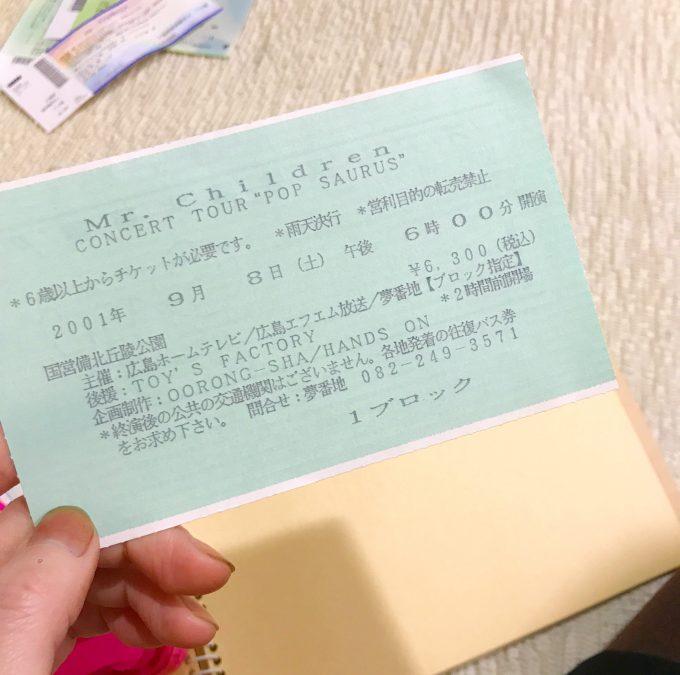 Mr. Children
CONCERT TOUR "POP SAURUS"
*6歳以上からチケットが必要です。 *雨天決行 *営利目的の転売禁止
2001年 9月 8日(土) 午後 6時00分 開演
¥6,300(税込)
国営備北丘陵公園 【ブロック指定】
主催:広島ホームテレビ/広島エフエム放送/夢番地 *2時間前開場
後援:TOY'S FACTORY
企画制作:OORONG-SHA/HANDS ON
*終演後の公共の交通機関はございません。各地発着の往復バス券
をお求め下さい。 問合せ:夢番地 082-249-3571
1ブロック